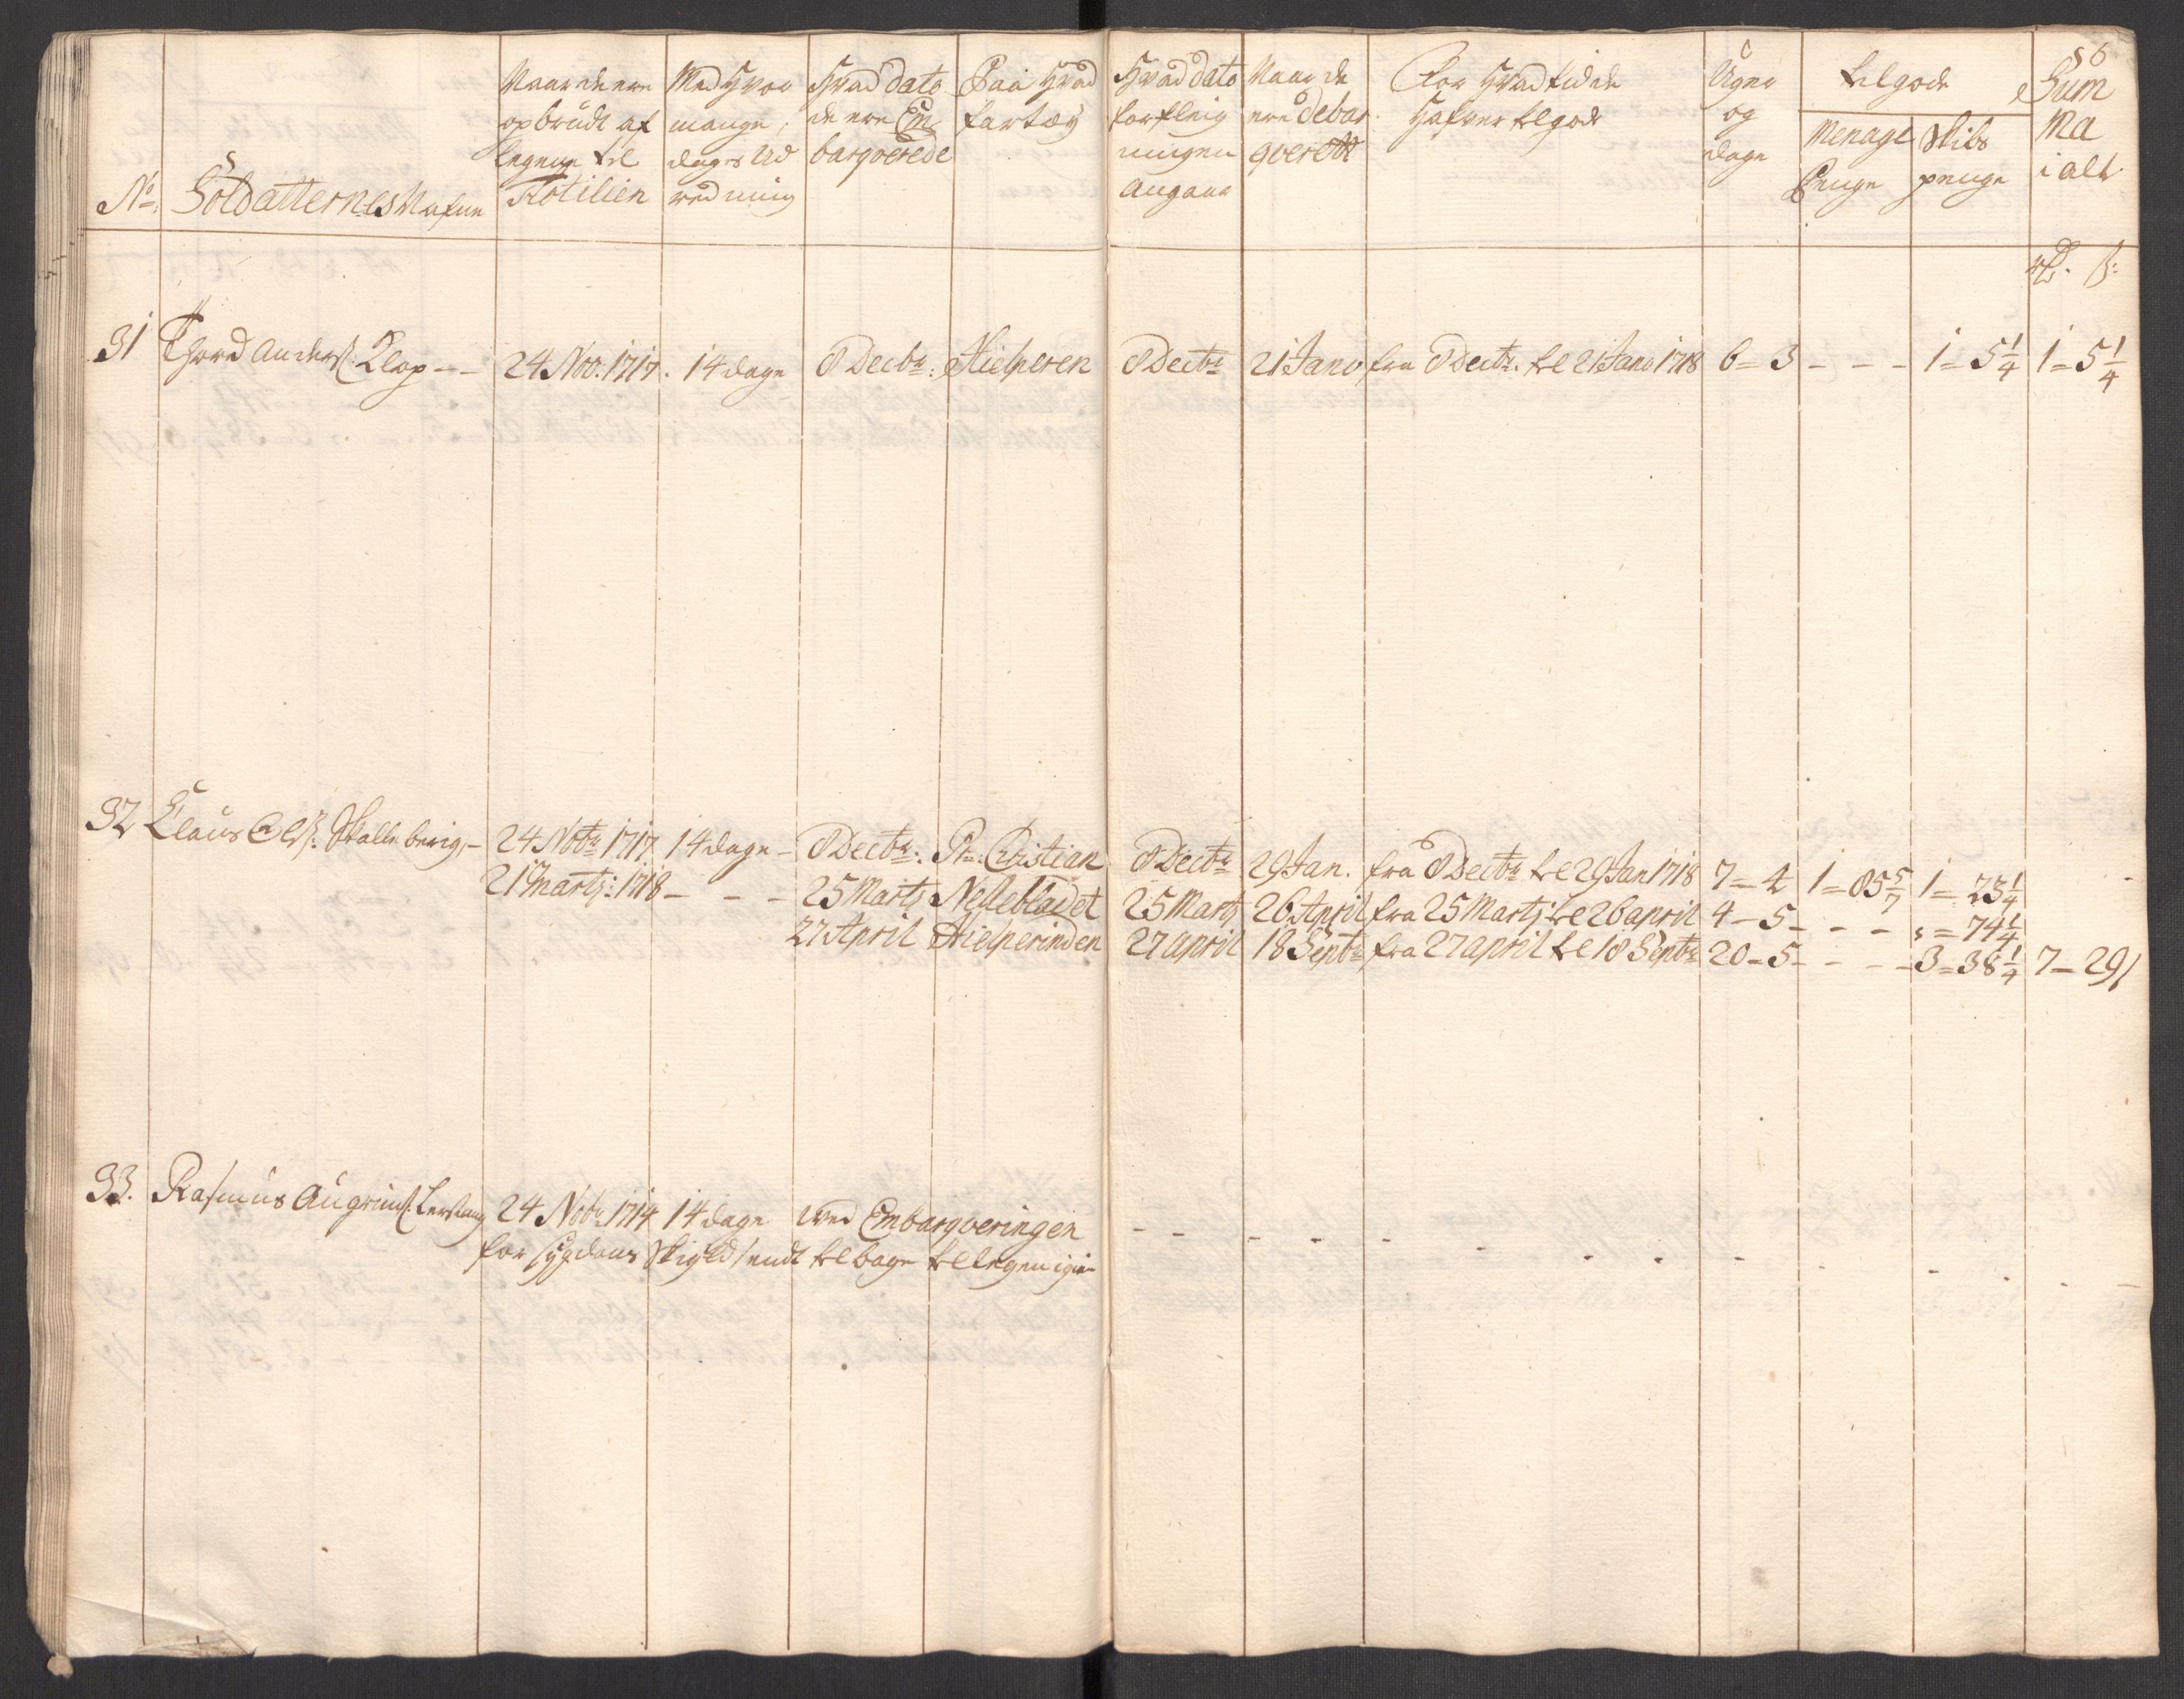 56
No Soldatternes Nafne
Naar de ere opbrudt af Legene til Flotilien
Med Hvor mange dages Ud
Hvad dato de ere Embarqverede
Paa Hvad fartøy
Hvad dato forpleigningen Angaar
Naar de ere debarqverett
For Hvad tid de Hafver tilgode
Uger og dage
tilgode
Menage Penge
Skibs penge
Summa i alt
Rd. ß:
31 Thord Anderß: Klop - - 24 Nov: 1717. 14 dage 8 Decbr: Hielperen 8 Decbr 21 Janv fra 8 Decbr. til 21 Janv 1718 6 = 3 - - - 1 = 5 1/4 1 = 5 1/4
32 Claus Olß: Skalleberig - 24 Nobr 1717 14 dage - 8 Decbr: Pr: Cristian 8 Decbr 29 Jan. fra 8 Decbr til 29 Jan 1718 7 - 4 1 = 85 5/7 1 = 23 1/4
21 Marty: 1718 - - - 25 Marty Nelleblad et 25 Marty 26 April fra 25 Marty til 26 april 4 - 5 - - - s = 74 1/4
27 April Hielperinden 27 april 18 Septr fra 27 april til 18 Septr 20 - 5 - - - 3 = 38 1/4 7 - 29/
33. Rasmus Augrimß: 24 Nobr 1714 14 dage wed Embarqveringen - - - - - - - - - - - - - -
for sygdoms Skyld sendt tilbage til legen igien